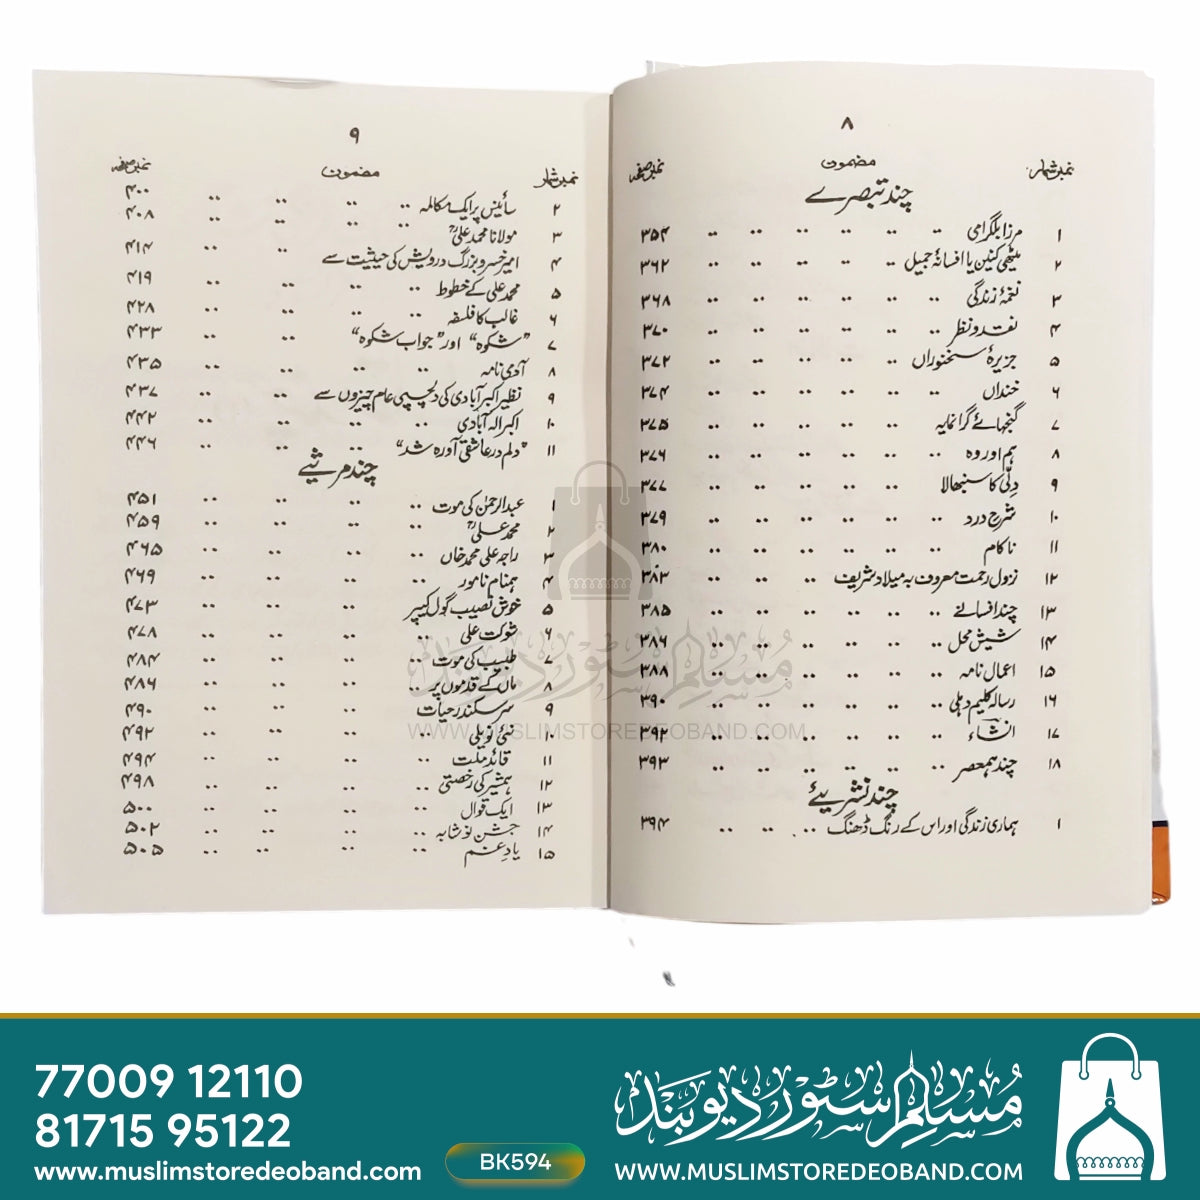 ۸
نمبر شمار مضمون نمبر صفحہ
چند تبصرے
۱ مرزا بلگرامی ۳۵۴
۲ میٹھی کنین یا افسانۂ جمیل ۳۶۲
۳ نغمۂ زندگی ۳۶۸
۴ نقد و نظر ۳۷۰
۵ جزیرۂ سخنوراں ۳۷۲
۶ خنداں ۳۷۴
۷ گنجہائے گرانمایہ ۳۷۵
۸ ہم اور وہ ۳۷۶
۹ دِلّی کا سنبھالا ۳۷۷
۱۰ شرحِ درد ۳۷۹
۱۱ ناکام ۳۸۰
۱۲ نزول رحمت معروف بہ میلاد شریف ۳۸۳
۱۳ چند افسانے ۳۸۵
۱۴ شیش محل ۳۸۶
۱۵ اعمال نامہ ۳۸۸
۱۶ رسالہ کلیم دہلی ۳۹۰
۱۷ انشاء ۳۹۲
۱۸ چند ہمعصر ۳۹۳
چند نشریئے
۱ ہماری زندگی اور اس کے رنگ ڈھنگ ۳۹۴
۹
نمبر شمار مضمون نمبر صفحہ
۲ سائنس پر ایک مکالمہ ۴۰۰
۳ مولانا محمد علیؒ ۴۰۸
۴ امیر خسرو بزرگ درویش کی حیثیت سے ۴۱۴
۵ محمد علی کے خطوط ۴۱۹
۶ غالب کا فلسفہ ۴۲۸
۷ ”شکوہ“ اور ”جواب شکوہ“ ۴۳۳
۸ آدمی نامہ ۴۳۵
۹ نظیر اکبر آبادی کی دلچسپی عام چیزوں سے ۴۳۷
۱۰ اکبر الہ آبادی ۴۴۲
۱۱ ”دلم در عاشقی آوارہ شد“ ۴۴۶
چند مرثیے
۱ عبدالرحمٰن کی موت ۴۵۱
۲ محمد علیؒ ۴۵۹
۳ راجہ علی محمد خاں ۴۶۵
۴ ہمنام نامور ۴۶۹
۵ خوش نصیب گول کیپر ۴۷۳
۶ شوکت علی ۴۷۸
۷ طبیب کی موت ۴۸۴
۸ ماں کے قدموں پر ۴۸۶
۹ سر سکندر حیات ۴۹۰
۱۰ نئی نویلی ۴۹۲
۱۱ قائد ملت ۴۹۴
۱۲ ہمشیر کی رخصتی ۴۹۸
۱۳ ایک قوال ۵۰۰
۱۴ جشن نوشابہ ۵۰۲
۱۵ یادِ غم ۵۰۵
مسلم سٹور دیوبند
WWW.MUSLIMSTOREDEOBAND.COM
77009 12110
81715 95122
www.muslimstoredeoband.com
BK594
مسلم سٹور دیوبند
WWW.MUSLIMSTOREDEOBAND.COM